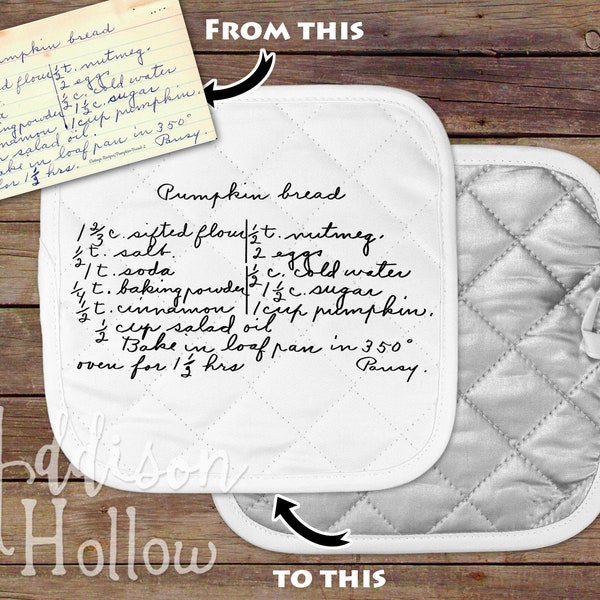 FROM THIS
Pumpkin bread
d flour ½ t. nutmeg.
2 eggs
½ c. cold water
baking powder 1½ c. sugar
cinnamon 1 cup pumpkin.
salad oil.
Bake in loaf pan in 350°
for 1½ hrs. Pansy.
Pumpkin bread
1 2/3 c. sifted flour ½ t. nutmeg.
½ t. salt. 2 eggs
1 t. soda ½ c. cold water
¼ t. baking powder 1½ c. sugar
½ t. cinnamon 1 cup pumpkin.
½ cup salad oil
Bake in loaf pan in 350°
oven for 1½ hrs Pansy.
Addison
Hollow
TO THIS